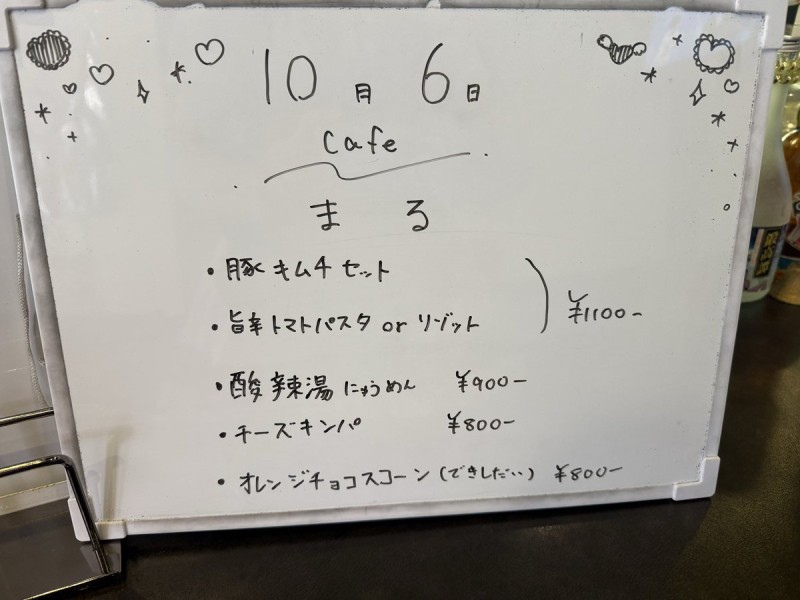 10月 6日
Cafe
まる
・豚キムチセット
・旨辛トマトパスタ or リゾット
¥1100-
・酸辣湯にゅうめん ¥900-
・チーズキンパ ¥800-
・オレンジチョコスコーン(できしだい) ¥800-